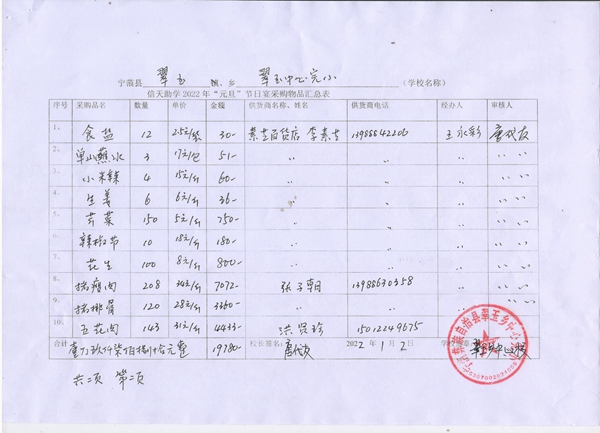 宁蒗县 翠玉 镇、乡 翠玉中心完小 (学校名称)
信天助学2022年“元旦”节日宴采购物品汇总表
序号 采购品名 数量 单价 金额 供货商名称、姓名 供货商电话 经办人 审核人
1、 食盐 12 2.5元/袋 30- 素芝百货店 李素芝 13988642206 王永彩 唐代友
2、 单山蘸水 3 17元/包 51- 〃 〃 〃 〃
3、 小米辣 4 15元/斤 60- 〃 〃 〃 〃
4、 生姜 6 6元/斤 36- 〃 〃 〃 〃
5、 芹菜 150 5元/斤 750- 〃 〃 〃 〃
6、 辣椒节 10 18元/斤 180- 〃 〃 〃 〃
7、 花生 100 8元/斤 800- 〃 〃 〃 〃
8、 猪瘦肉 208 34元/斤 7072- 张子朝 13988630358 〃 〃
9、 猪排骨 120 28元/斤 3360- 〃 〃 〃
10、 五花肉 143 31元/斤 4433- 洪贤珍 15012249675 〃 〃
合计 壹万玖仟柒佰捌拾元整 19780- 校长签名: 唐代友 2022年1月2日
共二页 第二页